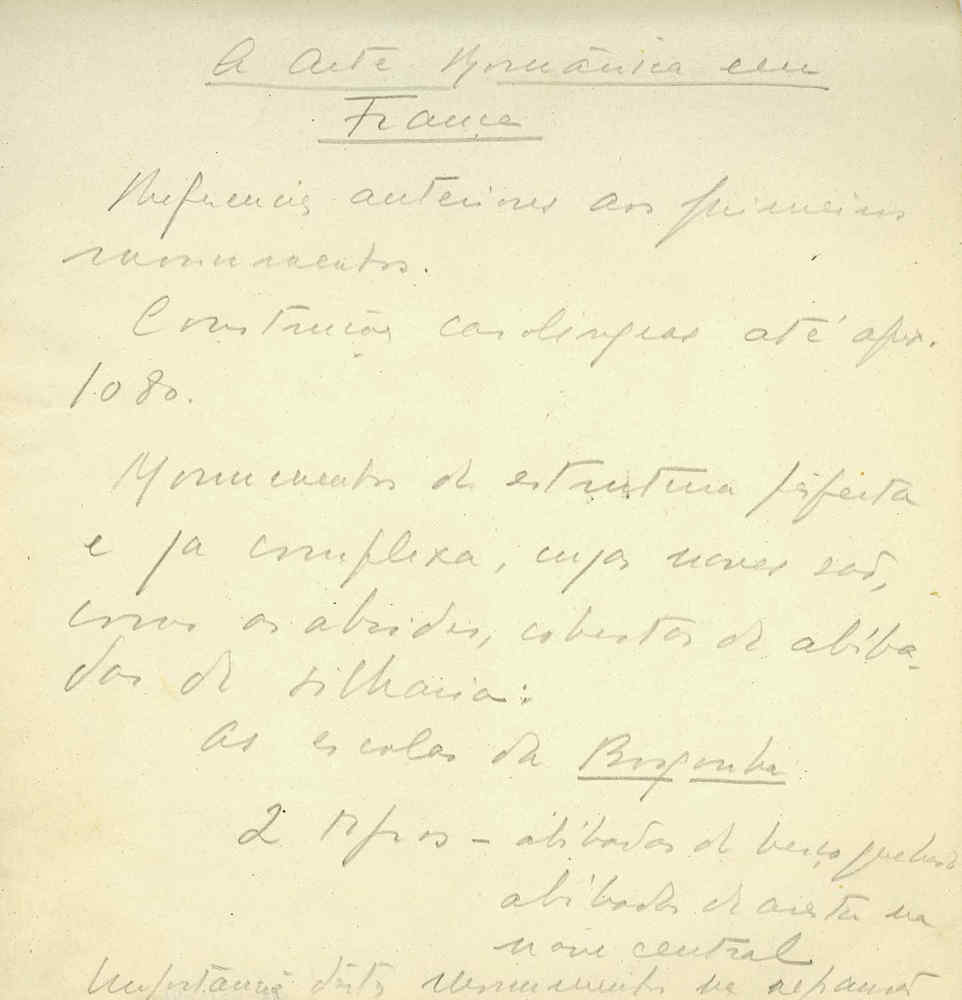 A Arte Românica em
França
Referencias anteriores aos primeiros
monumentos.
Construções carolingeas até apr.
1080.
Monumentos de estrutura perfeita
e já complexa, cujas naves são,
como as absides, cobertas de abóba-
das de silharia:
As escolas da Borgonha
2 tipos - abóbadas de berço quebrado
abóbadas de aresta na
nave central
Importância destes monumentos na expansão